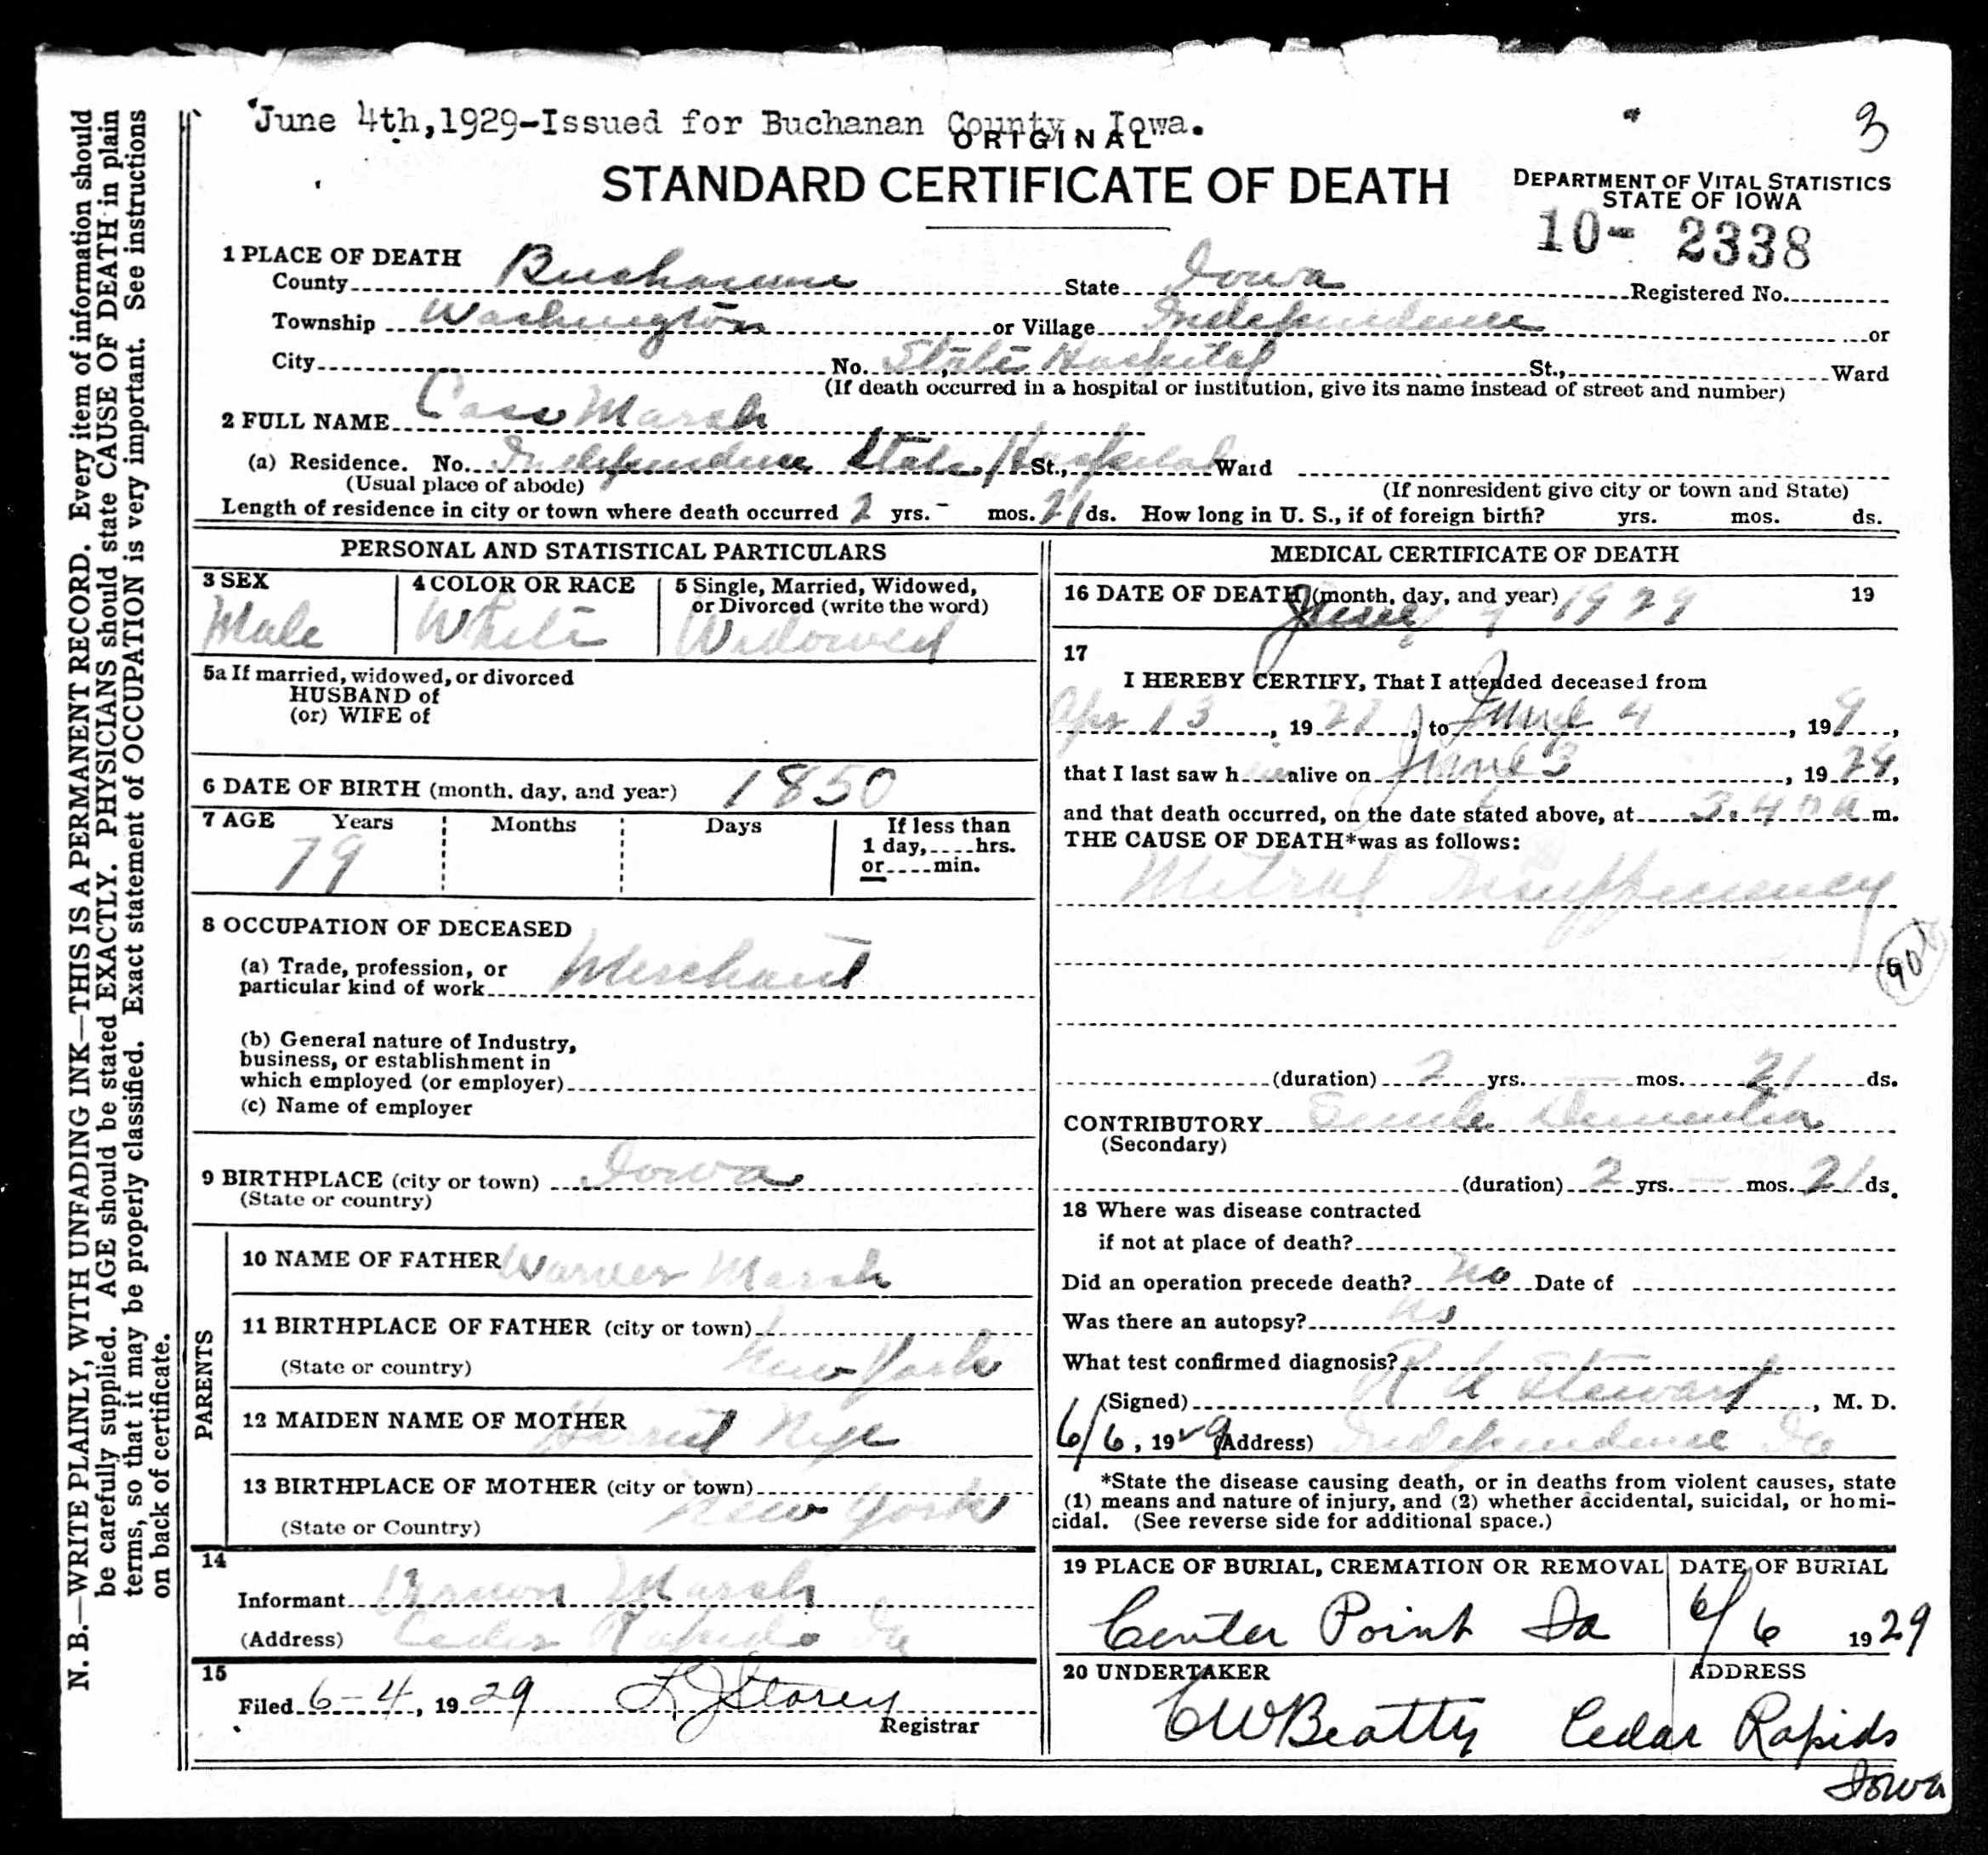 June 4th,1929-Issued for Buchanan County, Iowa.
3
ORIGINAL
STANDARD CERTIFICATE OF DEATH
DEPARTMENT OF VITAL STATISTICS
STATE OF IOWA
10- 2338
1 PLACE OF DEATH
County Buchanan State Iowa Registered No.
Township Washington or Village Independence or
City No. State Hospital St., Ward
(If death occurred in a hospital or institution, give its name instead of street and number)
2 FULL NAME Cass Marsh
(a) Residence. No. Independence State Hospital St., Ward
(Usual place of abode) (If nonresident give city or town and State)
Length of residence in city or town where death occurred 2 yrs. - mos. 21 ds. How long in U. S., if of foreign birth? yrs. mos. ds.
PERSONAL AND STATISTICAL PARTICULARS
3 SEX 4 COLOR OR RACE 5 Single, Married, Widowed,
or Divorced (write the word)
Male White Widowed
5a If married, widowed, or divorced
HUSBAND of
(or) WIFE of
6 DATE OF BIRTH (month, day, and year) 1850
7 AGE Years Months Days If less than
1 day, hrs.
or min.
79
8 OCCUPATION OF DECEASED
(a) Trade, profession, or
particular kind of work Merchant
(b) General nature of Industry,
business, or establishment in
which employed (or employer)
(c) Name of employer
9 BIRTHPLACE (city or town) Iowa
(State or country)
PARENTS
10 NAME OF FATHER Warner Marsh
11 BIRTHPLACE OF FATHER (city or town)
(State or country) New York
12 MAIDEN NAME OF MOTHER Harriet Nye
13 BIRTHPLACE OF MOTHER (city or town)
(State or Country) New York
14
Informant Vernon Marsh
(Address) Cedar Rapids Ia
15
Filed 6-4, 1929 L J Storey
Registrar
MEDICAL CERTIFICATE OF DEATH
16 DATE OF DEATH (month, day, and year) 19
June 4 1929
17
I HEREBY CERTIFY, That I attended deceased from
Apr 13, 1927, to June 4, 199,
that I last saw h im alive on June 3, 1929,
and that death occurred, on the date stated above, at 3.40 a m.
THE CAUSE OF DEATH*was as follows:
Mitral Insufficiency
90
(duration) 2 yrs. - mos. 21 ds.
CONTRIBUTORY Senile Dementia
(Secondary)
(duration) 2 yrs. - mos. 21 ds.
18 Where was disease contracted
if not at place of death?
Did an operation precede death? no Date of
Was there an autopsy? no
What test confirmed diagnosis?
(Signed) R A Stewart, M. D.
6/6, 1929 (Address) Independence Ia
*State the disease causing death, or in deaths from violent causes, state
(1) means and nature of injury, and (2) whether accidental, suicidal, or homi-
cidal. (See reverse side for additional space.)
19 PLACE OF BURIAL, CREMATION OR REMOVAL DATE OF BURIAL
Center Point Ia 6/6 1929
20 UNDERTAKER ADDRESS
C W Beatty Cedar Rapids
Iowa
N. B.—WRITE PLAINLY, WITH UNFADING INK—THIS IS A PERMANENT RECORD. Every item of information should
be carefully supplied. AGE should be stated EXACTLY. PHYSICIANS should state CAUSE OF DEATH in plain
terms, so that it may be properly classified. Exact statement of OCCUPATION is very important. See instructions
on back of certificate.